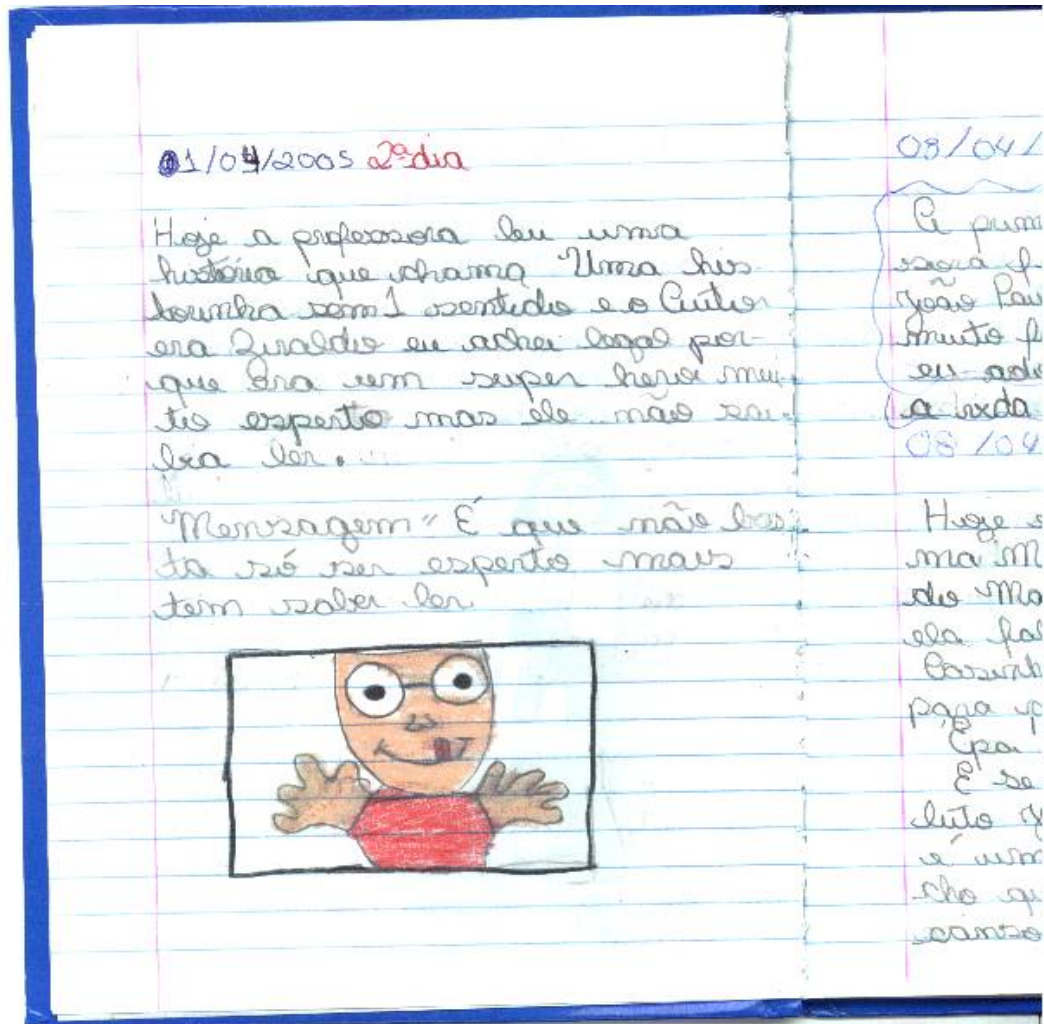 01/04/2005 2º dia
Hoje a professora leu uma
história que chama Uma his
torinha sem 1 sentido e o Autor
era Ziraldo eu achei legal por-
que era um super heroi mui-
to esperto mas ele não sa-
bia ler.
"Mensagem" É que não bas-
ta só ser esperto mais
tem saber ler
03/04/
A prim
João Pau
muito f
eu
a
08/04
Hoje s
ma M
do Mo
ela fal
para p
Epa
E se
é um
cho qu
canso